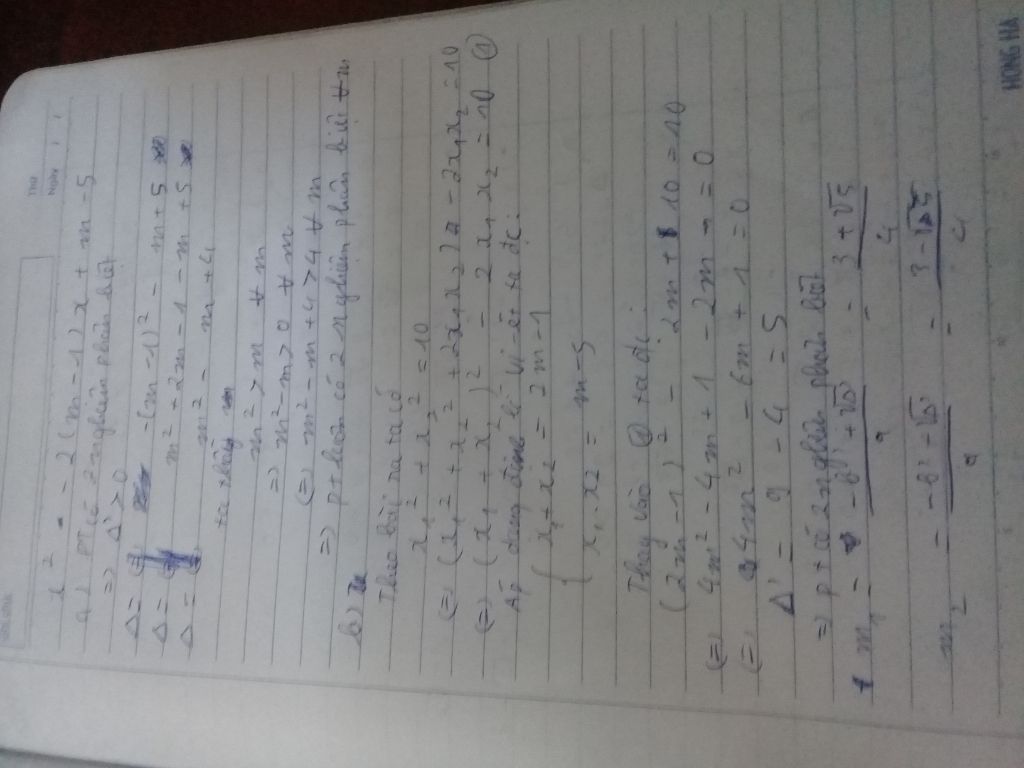 THỨ
NGÀY
x² - 2(m-1)x + m - 5
a) PT có 2 nghiệm phân biệt
=> Δ' > 0
Δ' = -(m-1)² - m + 5
Δ = m² + 2m - 1 - m + 5
Δ = m² - m + 4
ta thấy
m² > m ∀ m
=> m² - m > 0 ∀ m
(=) m² - m + 4 > 4 ∀ m
=> pt luôn có 2 nghiệm phân biệt ∀ m
b)
Theo bài ra ta có
x₁² + x₂² = 10
(=) (x₁² + x₂² + 2x₁x₂) - 2x₁x₂ = 10
(=) (x₁ + x₂)² - 2x₁x₂ = 10 (1)
Áp dụng định lí Vi-ét ta đc:
{ x₁ + x₂ = 2m - 1
x₁.x₂ = m - 5
Thay vào (1) ta đc:
(2m-1)² - 2m + 10 = 10
(=) 4m² - 4m + 1 - 2m = 0
(=) 4m² - 6m + 1 = 0
Δ' = 9 - 4 = 5
=> pt có 2 nghiệm phân biệt
m₁ = -b' + √Δ' / a = 3 + √5 / 4
m₂ = -b' - √Δ' / a = 3 - √5 / 4
HONG HA